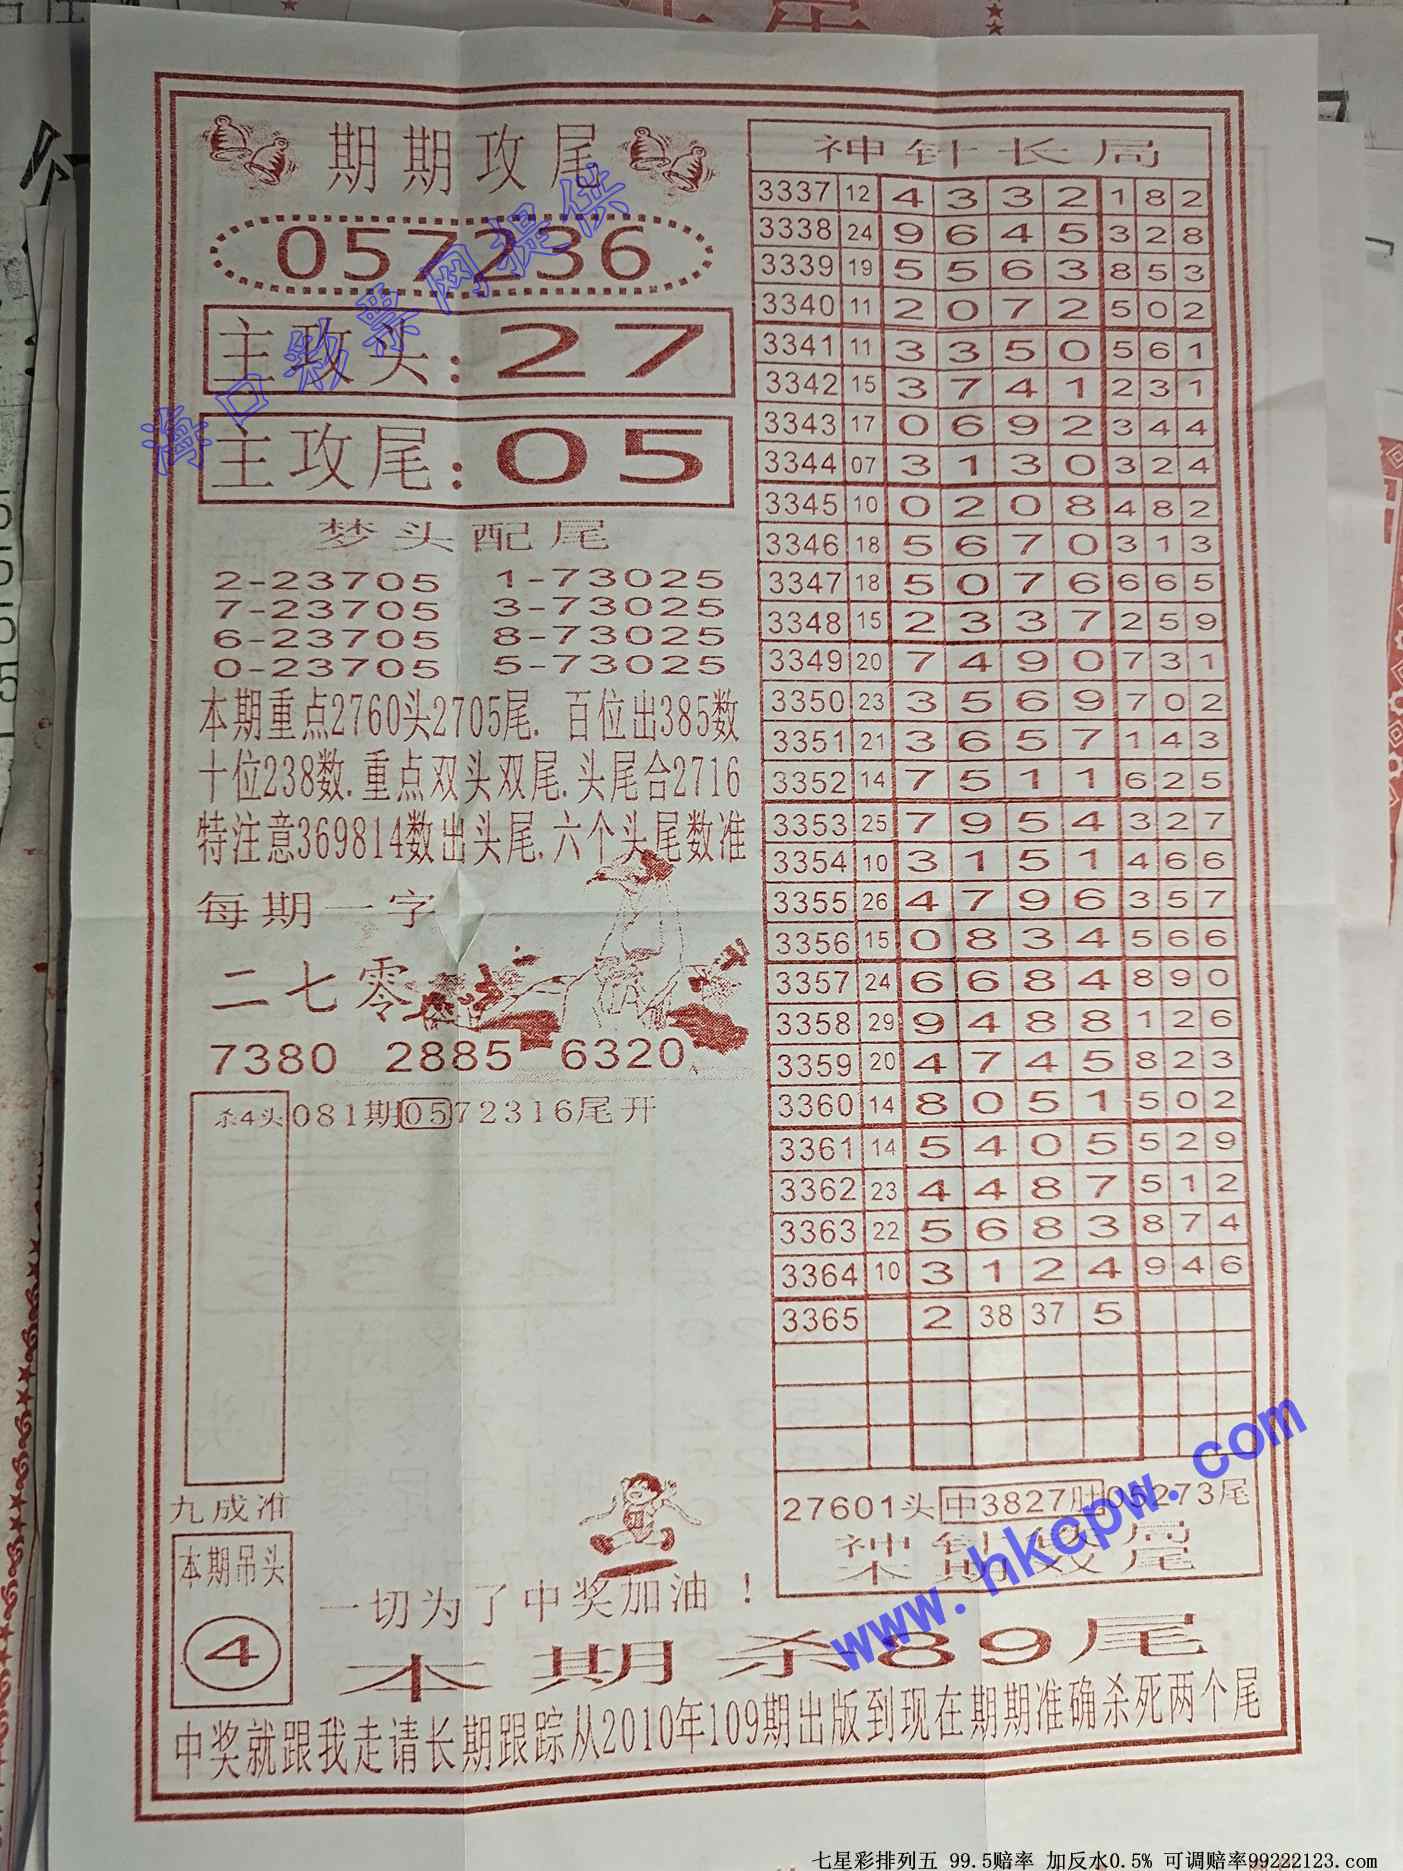 期期攻尾
057236
主攻头:27
主攻尾:05
梦头配尾
2-23705 1-73025
7-23705 3-73025
6-23705 8-73025
0-23705 5-73025
本期重点2760头2705尾. 百位出385数
十位238数.重点双头双尾.头尾合2716
特注意369814数出头尾.六个头尾数准
每期一字
二七零
7380 2885 6320
杀4头081期0572316尾开
九成准
本期吊头
4
一切为了中奖加油！
神针长局
3337 12 4 3 3 2 1 8 2
3338 24 9 6 4 5 3 2 8
3339 19 5 5 6 3 8 5 3
3340 11 2 0 7 2 5 0 2
3341 11 3 3 5 0 5 6 1
3342 15 3 7 4 1 2 3 1
3343 17 0 6 9 2 3 4 4
3344 07 3 1 3 0 3 2 4
3345 10 0 2 0 8 4 8 2
3346 18 5 6 7 0 3 1 3
3347 18 5 0 7 6 6 6 5
3348 15 2 3 3 7 2 5 9
3349 20 7 4 9 0 7 3 1
3350 23 3 5 6 9 7 0 2
3351 21 3 6 5 7 1 4 3
3352 14 7 5 1 1 6 2 5
3353 25 7 9 5 4 3 2 7
3354 10 3 1 5 1 4 6 6
3355 26 4 7 9 6 3 5 7
3356 15 0 8 3 4 5 6 6
3357 24 6 6 8 4 8 9 0
3358 29 9 4 8 8 1 2 6
3359 20 4 7 4 5 8 2 3
3360 14 8 0 5 1 5 0 2
3361 14 5 4 0 5 5 2 9
3362 23 4 4 8 7 5 1 2
3363 22 5 6 8 3 8 7 4
3364 10 3 1 2 4 9 4 6
3365 2 38 37 5
27601头中3827肚05273尾
本期杀89尾
中奖就跟我走请长期跟踪从2010年109期出版到现在期期准确杀死两个尾
海口彩票网提供
www.hkcpw.com
七星彩排列五 99.5赔率 加反水0.5% 可调赔率99222123.com